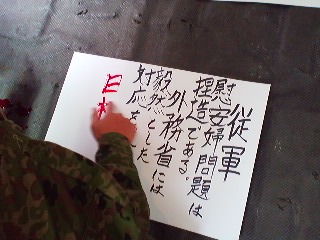 従軍
慰安婦問題は
捏造である。
外務省には
毅然とした
対応を
日本